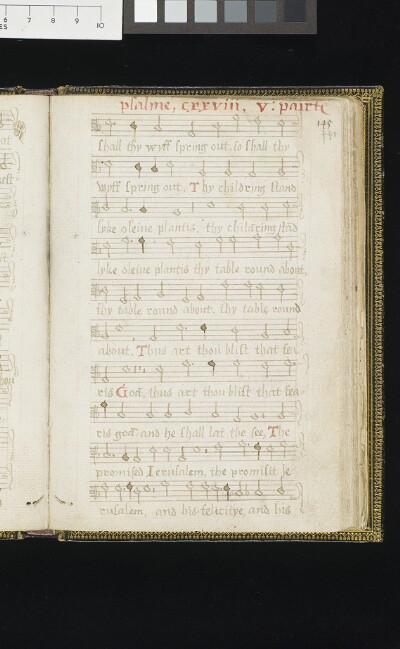 psalme, cxxviii, v: pairte
145
shall thy wyff spring out, so shall thy
wyff spring out, Thy childring stand
lyke oleive plantis, thy childring stād
lyke oleive plantis thy table round about,
thy table round about, thy table round
about, Thus art thou blist that fei
ris God, thus art thou blist that fea
ris god, and he shall lat the see, The
promised Ierusalem, the promisit Je
rusalem, and his felicitye, and his